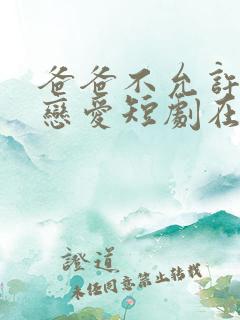 爸爸不允許
戀愛短劇在
證道
未經同意禁止轉載